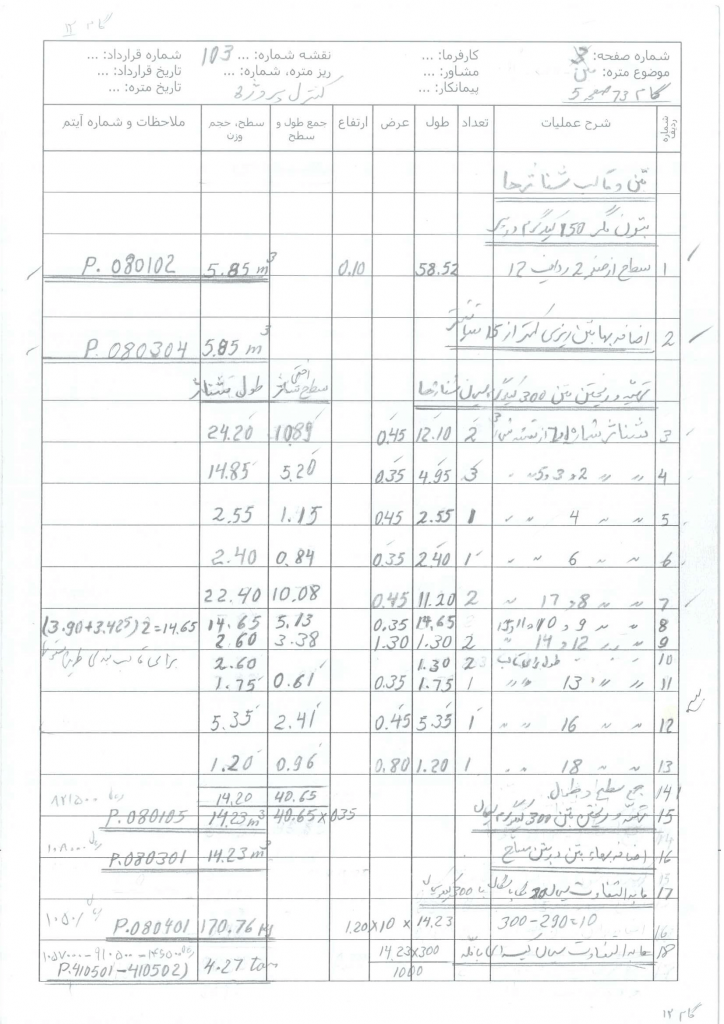 گام ۱۲
شماره صفحه: 3 کارفرما: ... نقشه شماره: ... 103 شماره قرارداد: ...
موضوع متره: بتن مشاور: ... ریز متره، شماره: ... تاریخ قرارداد: ...
گام 73 صفحه 5 پیمانکار: ... کنترل پروژه 2 تاریخ متره: ...
شماره ردیف شرح عملیات تعداد طول عرض ارتفاع جمع طول و سطح سطح، حجم وزن ملاحظات و شماره آیتم
بتن و قالب شناژها
بتون مگر 150 کیلوگرم در
1 سطح از صفحه 2 ردیف 12 58.52 0.10 5.85 m3 P. 080102
2 اضافه بها بتن ریزی کمتر از 15 سانتیمتر 5.85 m3 P. 080304
تهیه و ریختن بتن 300 کیلوگرم سیمان شناژها سطح افقی شناژ طول شناژ
3 شناژ شماره 1 و 7 از نقشه 2 12.10 0.45 10.89 24.20
4 〃 〃 2 و 3 و 5 〃 〃 3 4.95 0.35 5.20 14.85
5 〃 〃 4 〃 〃 1 2.55 0.45 1.15 2.55
6 〃 〃 6 〃 〃 1 2.40 0.35 0.84 2.40
7 〃 〃 8 و 17 〃 2 11.20 0.45 10.08 22.40
8 〃 〃 9 و 10 و 11 و 15 14.65 0.35 5.13 14.65 (3.90+3.425)2=14.65
9 〃 〃 12 و 14 〃 2 1.30 1.30 3.38 2.60 برای قالب بندی
10 〃 〃 طول برای قالب 2 1.30 2.60
11 〃 〃 13 〃 〃 1 1.75 0.35 0.61 1.75
12 〃 〃 16 〃 〃 1 5.35 0.45 2.41 5.35
13 〃 〃 18 〃 〃 1 1.20 0.80 0.96 1.20
14 جمع سطح و طول 40.65 14.20
15 تهیه و ریختن بتن 300 کیلوگرم سیمان 40.65×0.35 14.23 m3 P.080105
16 اضافه بهاء بتن در بتن مسلح 14.23 m3 P.080301
17 مابه التفاوت سیمان
300-290=10 1.20×10×14.23 170.76 kg P.080401
18 مابه التفاوت سیمان کیسه ای با فله 14.23×300 / 1000 4.27 ton P.410501-410502)
گام ۱۲